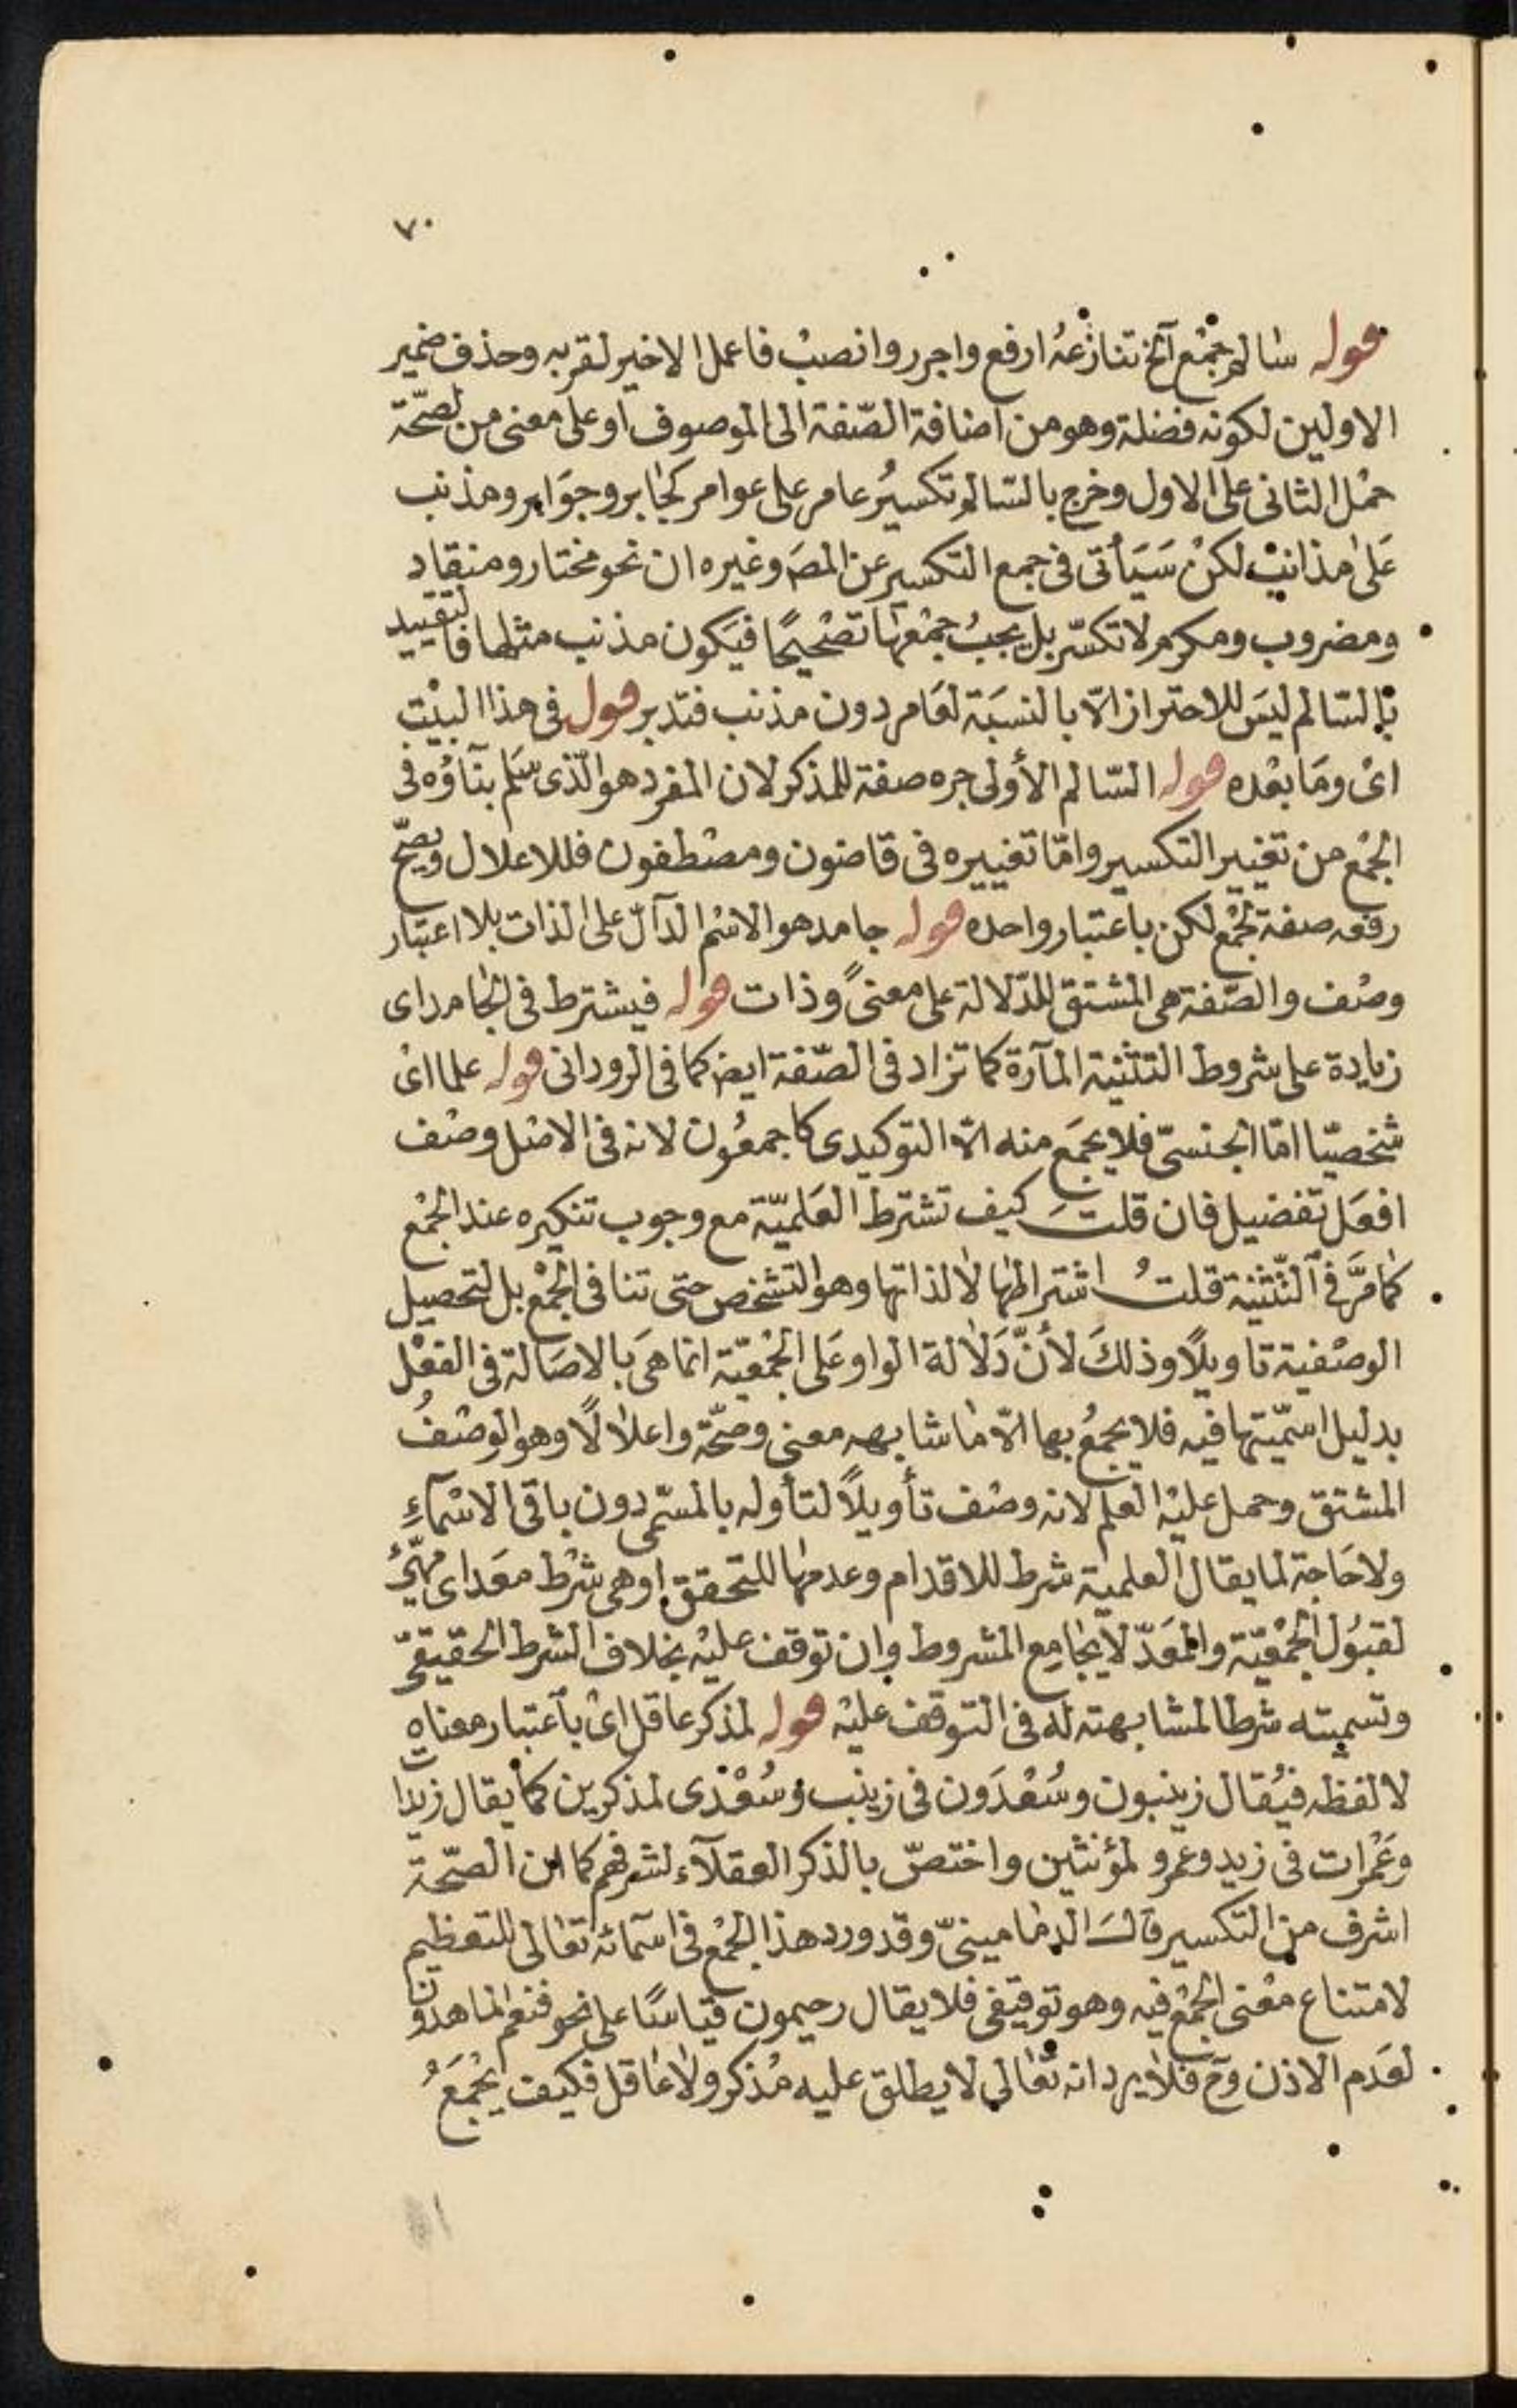 ٧٠
قوله سالم جمع الخ تنازعهُ ارفع واجرر وانصبْ فاعمل الاخير لقربه وحذف ضمير
الاولين لكونه فضلة وهو من اضافة الصّفة الى الموصوف او على معنى من لصحّة
حمْل الثانى على الاول وخرج بالسّالم تكسيرُ عامر على عوامر كجابر وجوَابر ومذنب
عَلى مذانبْ لكنْ سَيَأتى فى جمع التكسير عن المصَ وغيره ان نحو مختار ومنقاد
ومضروب ومكرم لا تكسّر بل يجبُ جمْعهَا تصْحيحًا فيَكون مذنب مثلها فالتقييد
بالسّالم ليسَ للاحتراز الّا بالنسبَة لعَامر دون مذنب فتدبر قول فى هذا البيْت
اىْ ومَا بعْده قوله السّالم الأولى جره صفة للمذكر لان المفرد هو الّذى سَلم بنَآؤه فى
الجمْع من تغيير التكسير وامّا تغييره فى قاضون ومصْطفون فللاعلال ويصحّ
رفعه صفة لجمْع لكن باعتبار واحده قوله جامد هو الاسْم الدآلّ على الذات بلا اعتبار
وصْف والصّفة هى المشتق للدّلالة على معنىً وذات قوله فيشترط فى الجامد اى
زيادة على شروط التثنية المآرة كما تزاد فى الصّفة ايضا كما فى الرودانى قوله علما اىْ
شخصيّا امّا الجنسىّ فلا يجمَع منه الّا التوكيدى كاجمعُون لانه فى الاصْل وصْف
افعَل تفضيل فان قلتَ كيف تشترط العَلميّة مع وجوب تنكيره عند الجمْع
كمَا مرَّ فى التّثنية قلتُ اشتراطهَا لا لذاتها وهو التشخص حتى تنافى الجمْع بل لتحصيل
الوصْفية تاويلًا وذلكَ لأنّ دَلَالة الواو عَلى الجمْعيّة انما هىَ بالاصَالة فى الفعْل
بدليل اسميّتها فيه فلا يجمعُ بها الّا ما شابهه معنى وصحّة واعلالًا وهو الوصْفُ
المشتق وحمل عليْه العلم لانه وصْف تأويلًا لتأوله بالمسّمى دون باقى الاسْمآءِ
ولا حَاجة لما يقال العلمية شرط للاقدام وعدمها للتحقق او هى شرْط معَد اى مهيّئ
لقبُول الجمْعيّة والمعَدّ لا يجامِع المشروط وان توقف عليْه بخلاف الشرط الحقيقىّ
وتسميته شرطا لمشابهته له فى التوقف عليْه قوله لمذكر عاقل اىْ باعتبار معناه
لا لفظه فيُقال زينبون وسُعْدَون فى زينب وسُعْدى لمذكرين كما يقال زيدات
وعَمْرات فى زيد وعمرو لمؤنثين واختصّ بالذكر العقلآء لشرفهم كما ان الصّحة
اشرف من التكسير قالَ الدمَامينىّ وقد ورد هذا الجمْع فى اسمَآئه تعالى للتعظيم
لامتناع معْنى الجمْع فيه وهو توقيفى فلا يقال رحيمون قياسًا على نحو فنعم الماهدون
لعَدم الاذن وح فلا يرد انه تعَالى لا يطلق عليه مُذكر ولا عَاقل فكيف يُجمَعُ